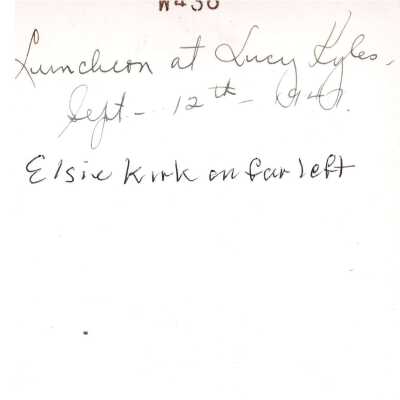 W430
Luncheon at Lucy Kyles,
Sept - 12th - 1947.
Elsie Kirk on far left